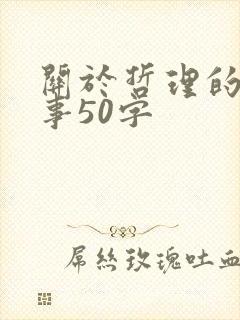 關於哲理的
事50字
屌絲玫瑰吐血